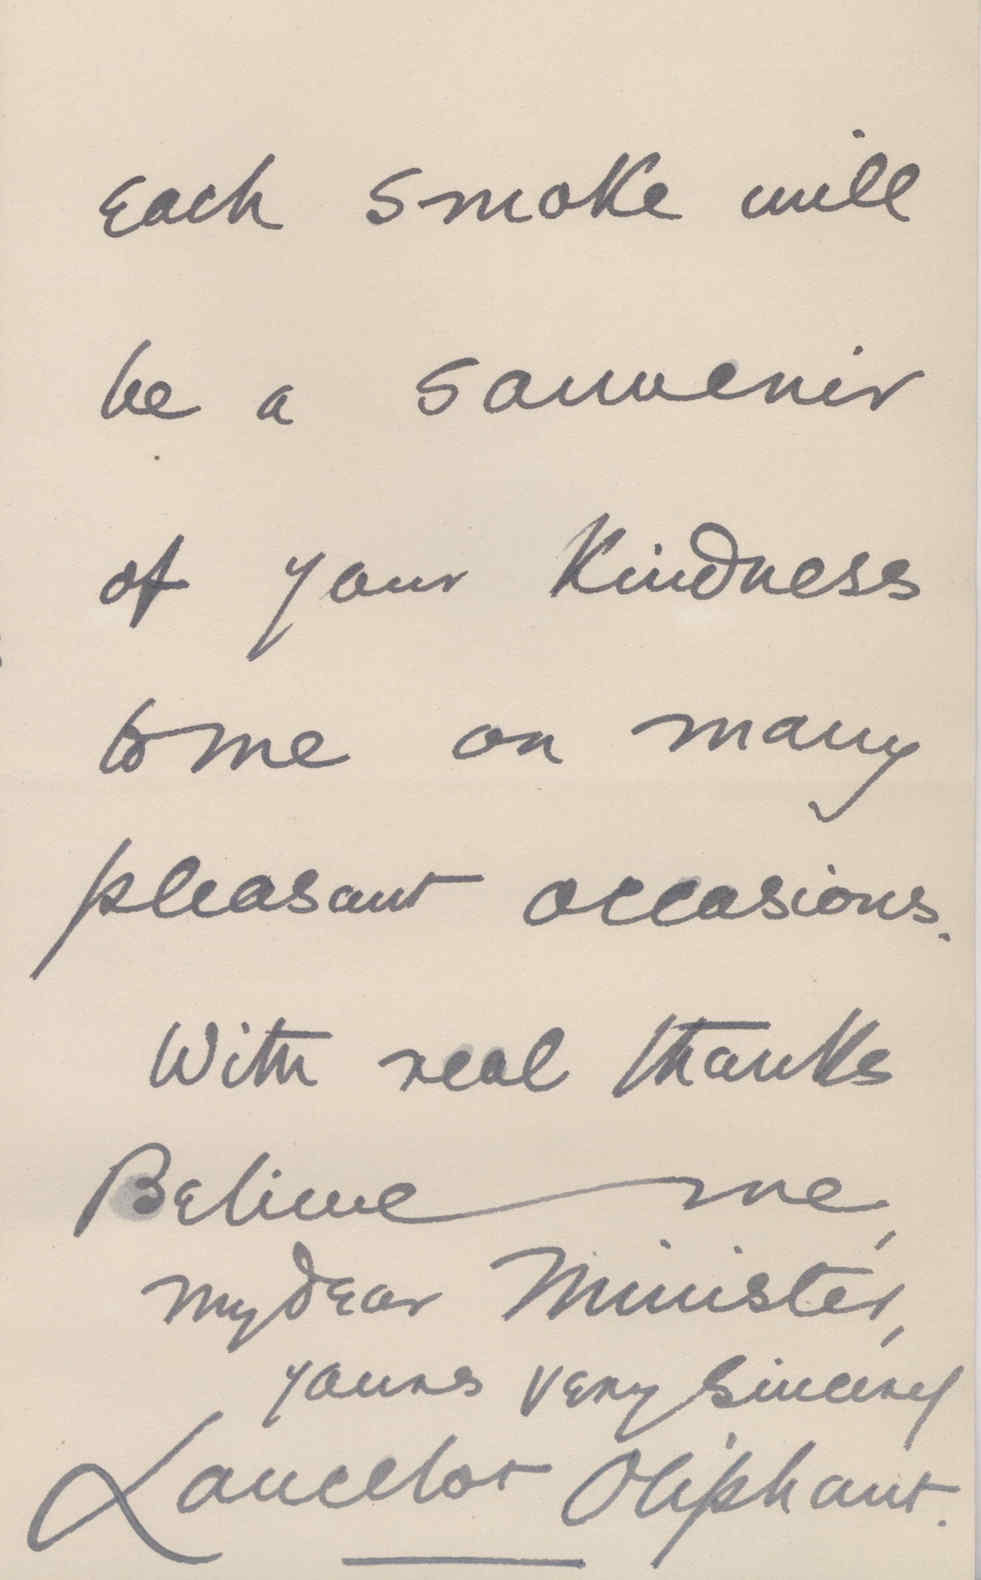 Each smoke will
be a souvenir
of your kindness
to me on many
pleasant occasions.
With real thanks
Believe me,
my dear Minister,
yours very sincerely
Lancelot Oliphant.